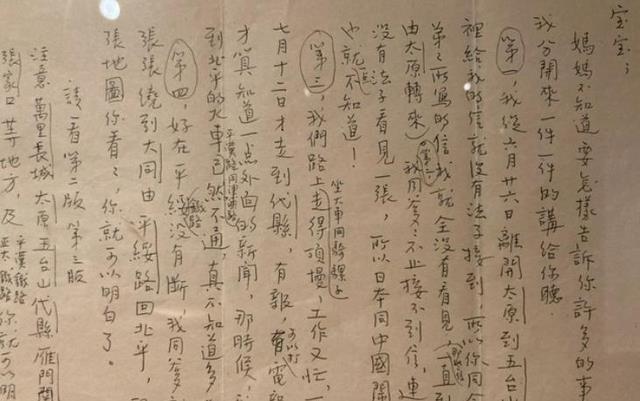 寶寶：
媽媽不知道要怎樣告訴你許多的事
我分開來一件一件的講給你聽
第一，我從六月廿六日離開太原到五台山
裡給我的信就沒有法子接到，所以你同金
弟々所寫的信我就全沒有看見（那些信一直到
由太原轉來）我同爹々不止接不到信，連
沒有法子看見一張，所以日本同中國鬧
也就不知道！
第三，我們路上坐大車同騎騾子走得頂慢，工作又忙，一
七月十二日才走到代縣，有報，可以打電報
才算知道一点外面的新聞，那時候，
到北平的火車平漢路同津浦路已然不通，真不知道多
第四，好在平綏鉄路沒有斷，我同爹
張張繞到大同由平綏路回北平，現
張地圖你看了，你就可以明白了。
請看第二版 第三版
注意萬里長城太原五台山代縣雁門關
張家口等地方，及平漢鐵路正太鐵路你就可以明